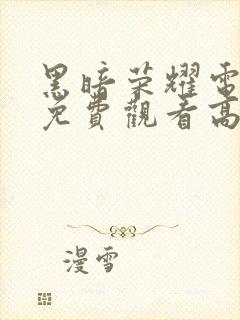 黑暗荣耀電
免費觀看高
漫雪